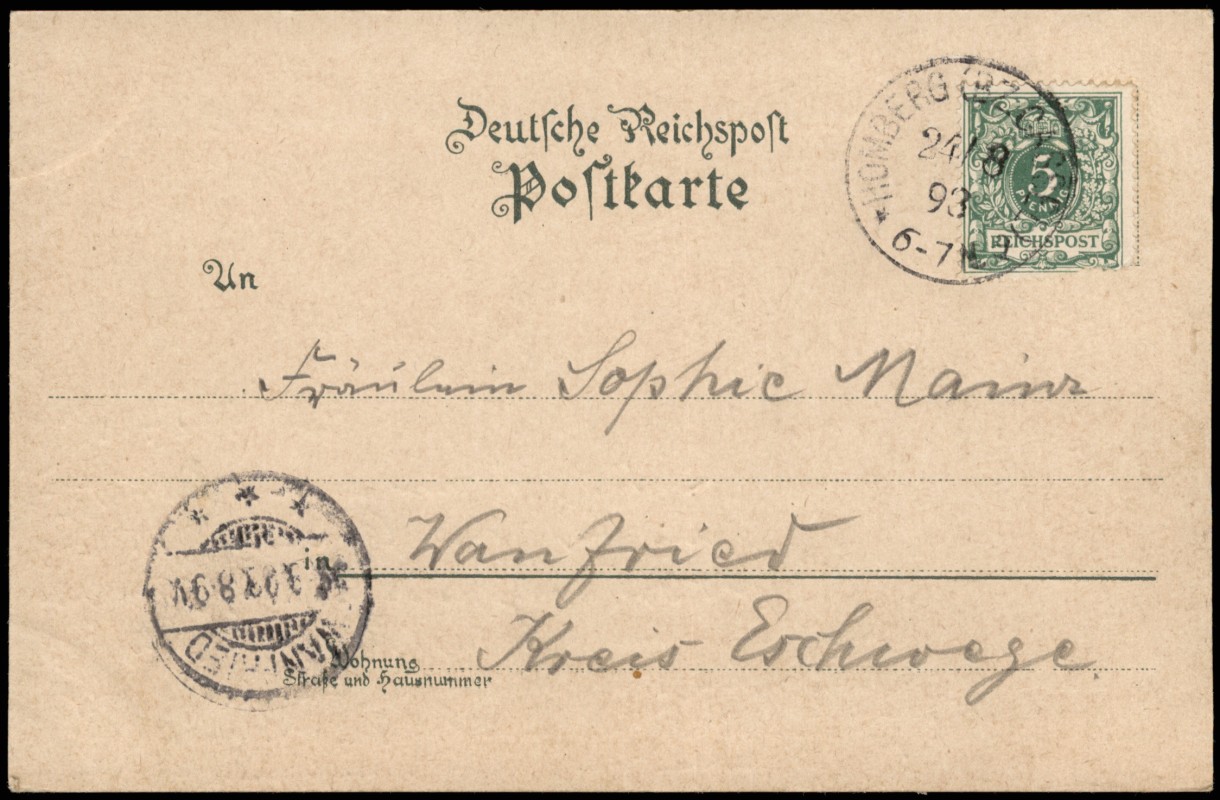 Deutsche Reichspost
Postkarte
HOMBERG (BZ. CASSEL)
24/8
93
6-7N.
5
PFENNIG
REICHSPOST
An
Fräulein Sophie Mainz
in Wanfried
Kreis Eschwege
WANFRIED
93.8-9V
Wohnung
Straße und Hausnummer